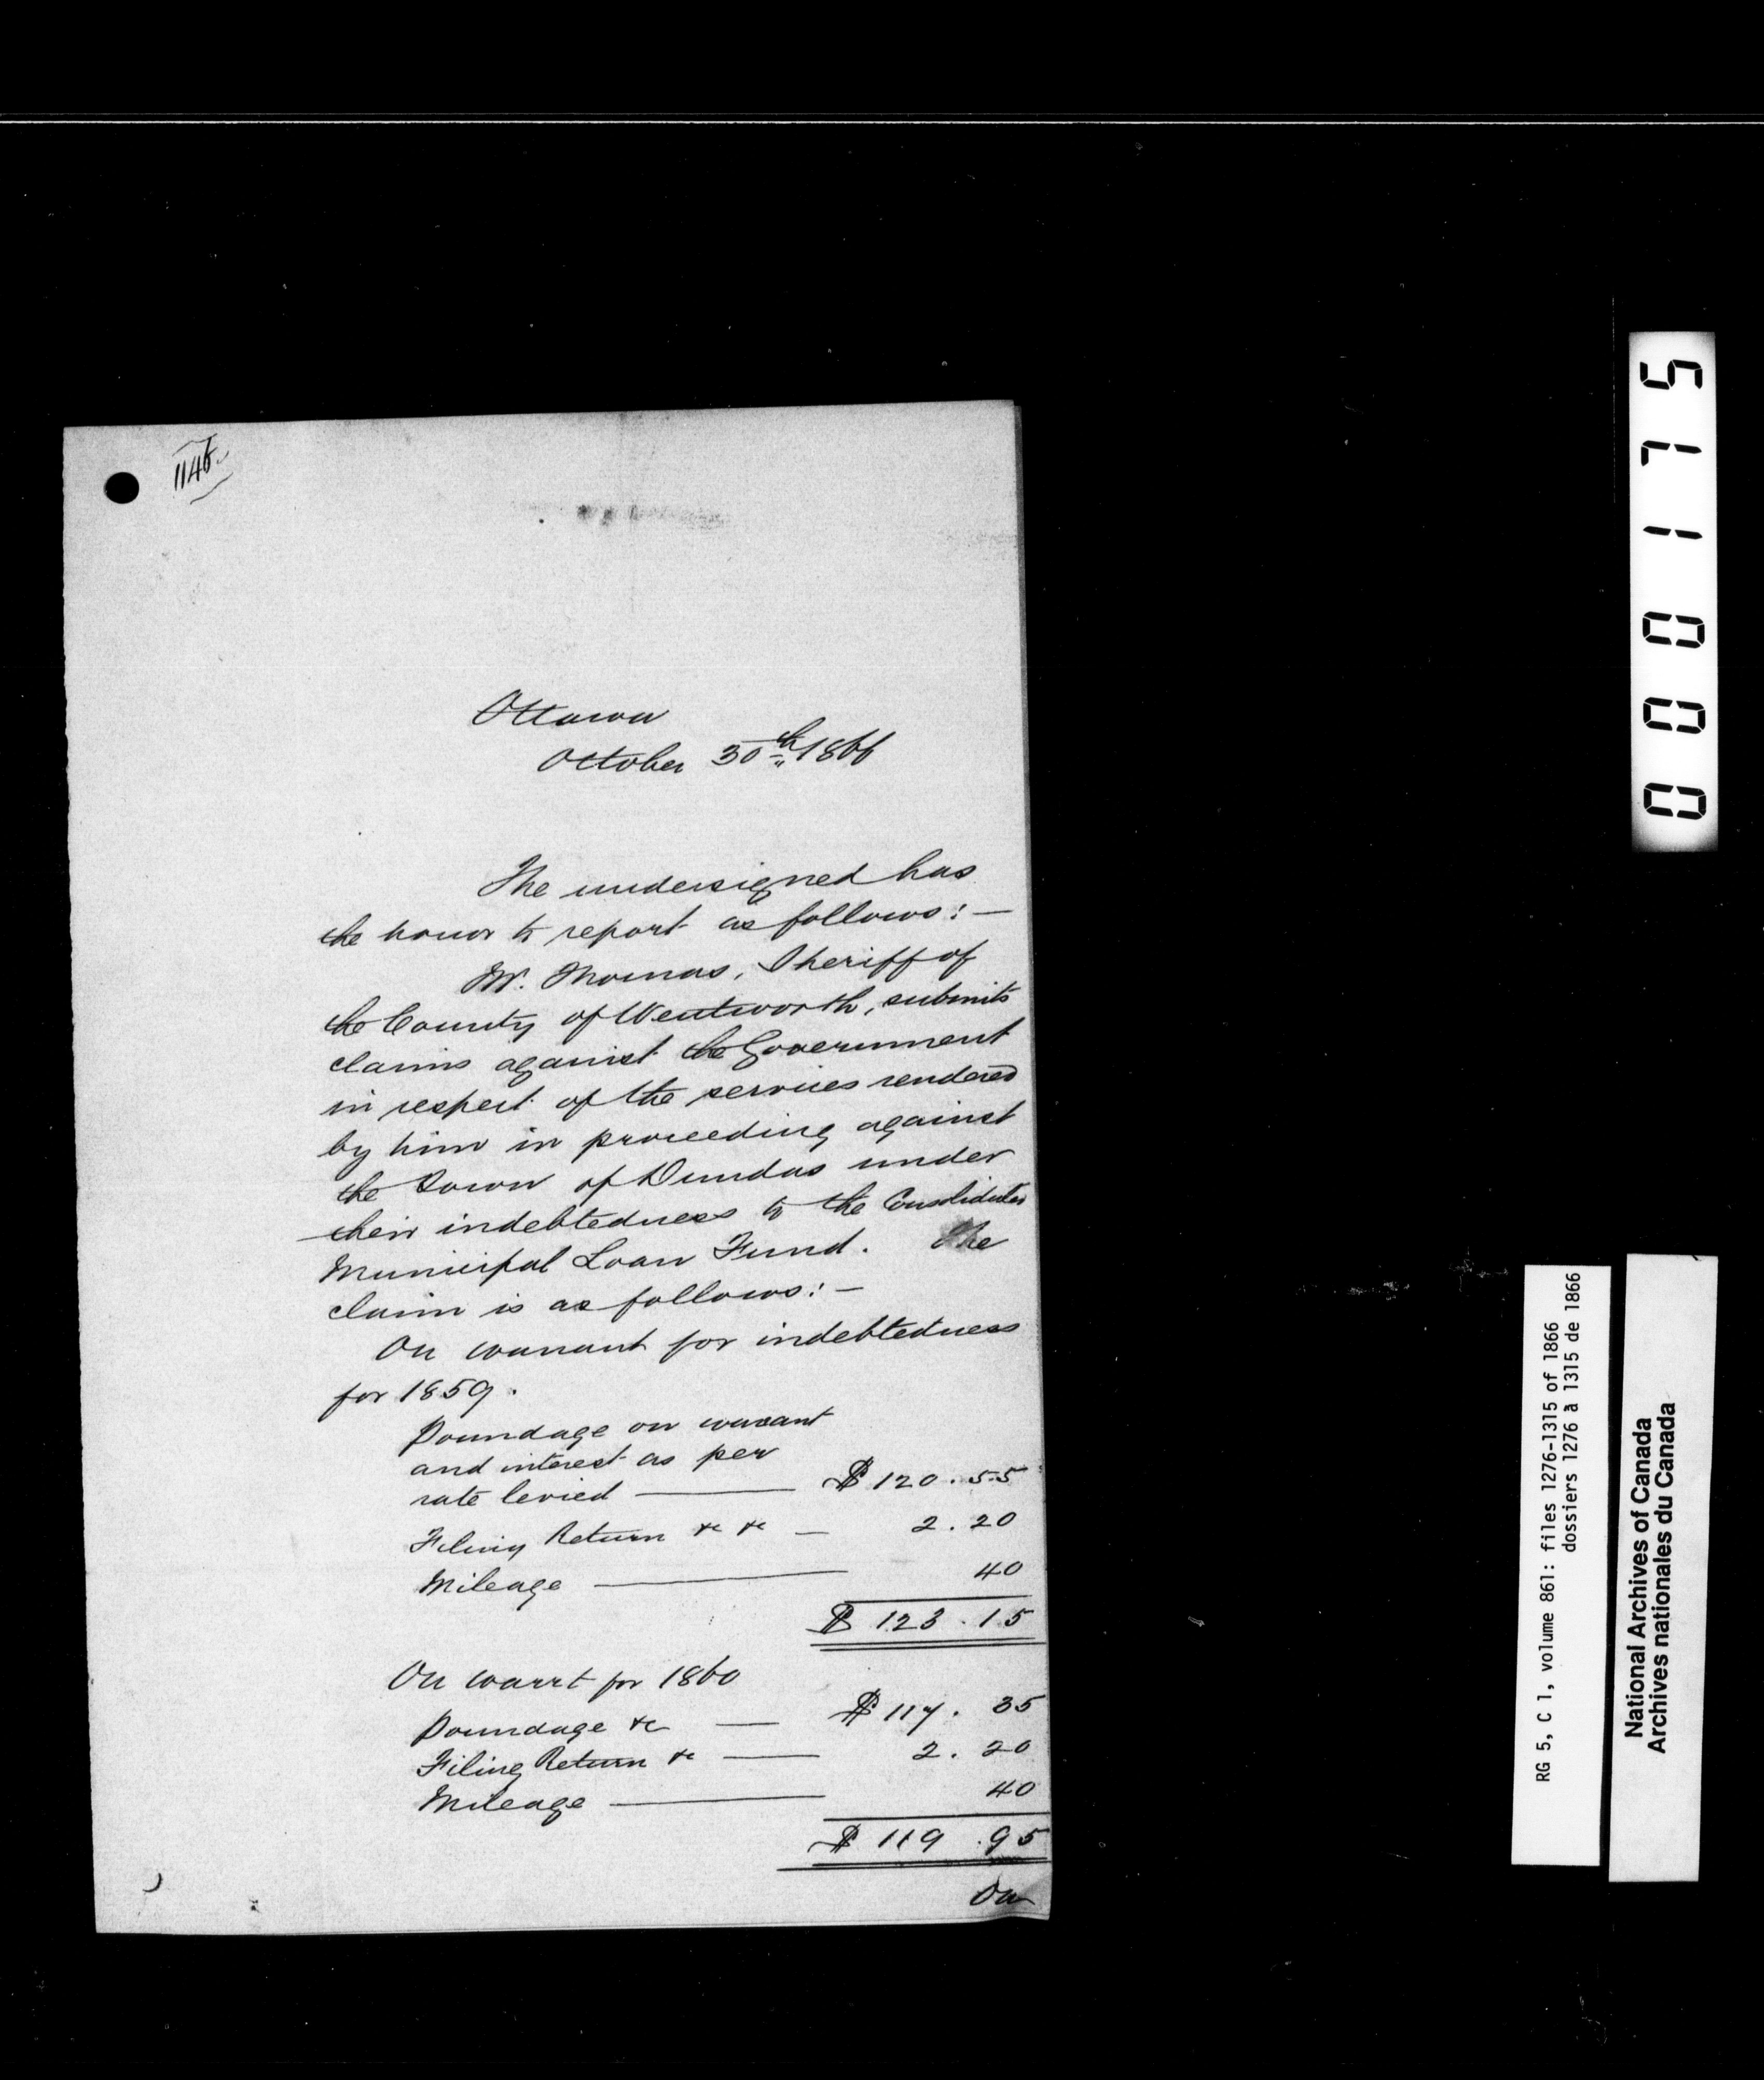 1146
Ottawa
October 30th 1866
The undersigned has
the honor to report as follows:—
Mr. Thomas, Sheriff of
the County of Wentworth, submits
claims against the Government
in respect of the services rendered
by him in proceeding against
the Town of Dundas under
their indebtedness to the Consolidated
Municipal Loan Fund. The
claim is as follows:—
On warrant for indebtedness
for 1859.
Poundage on warrant
and interest as per
rate levied — $120.55
Filing Return &c &c — 2.20
Mileage — 40
$ 123.15
On warrt for 1860
Poundage &c — $117.35
Filing Return &c — 2.20
Mileage — 40
$ 119.95
On
000175
RG 5, C 1, volume 861: files 1276-1315 of 1866
dossiers 1276 à 1315 de 1866
National Archives of Canada
Archives nationales du Canada